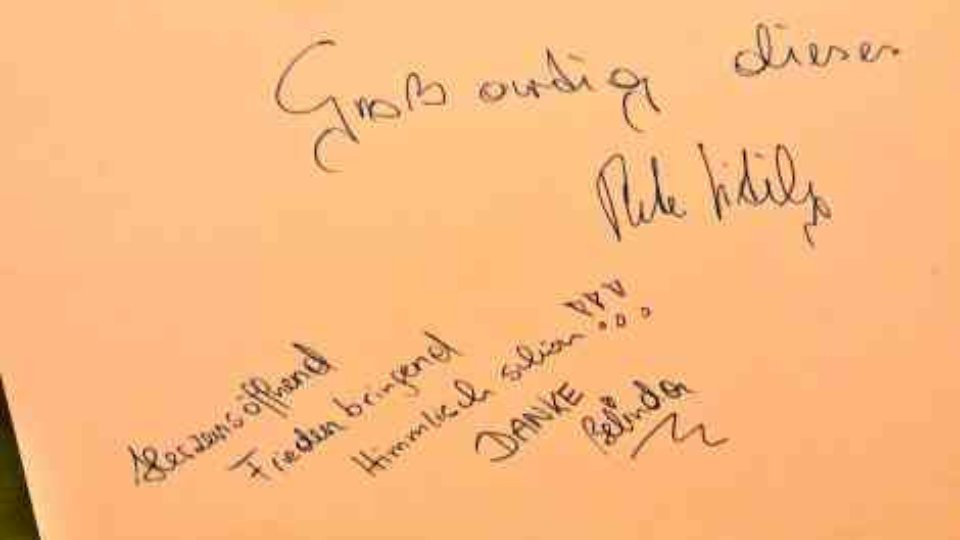 Großartig dieses
Herzensöffnend
Frieden bringend
Himmlisch schön!!!
DANKE
Belinda